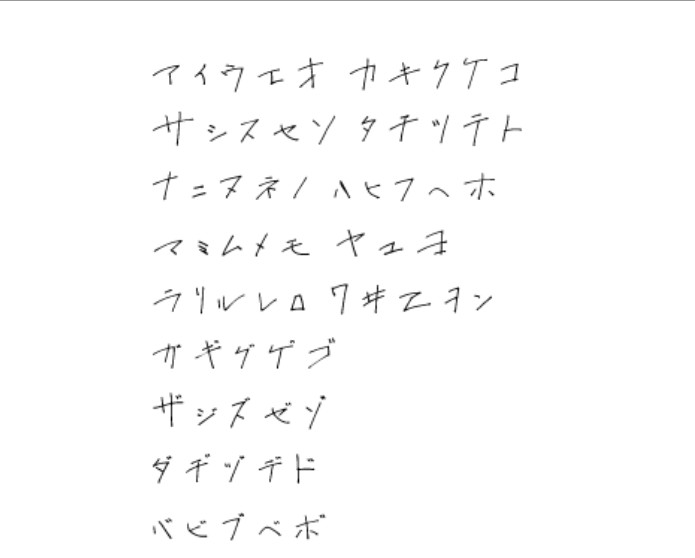 アイウエオ カキクケコ
サシスセソ タチツテト
ナニヌネノ ハヒフヘホ
マミムメモ ヤユヨ
ラリルレロ ワヰヱヲン
ガギグゲゴ
ザジズゼゾ
ダヂヅデド
バビブベボ